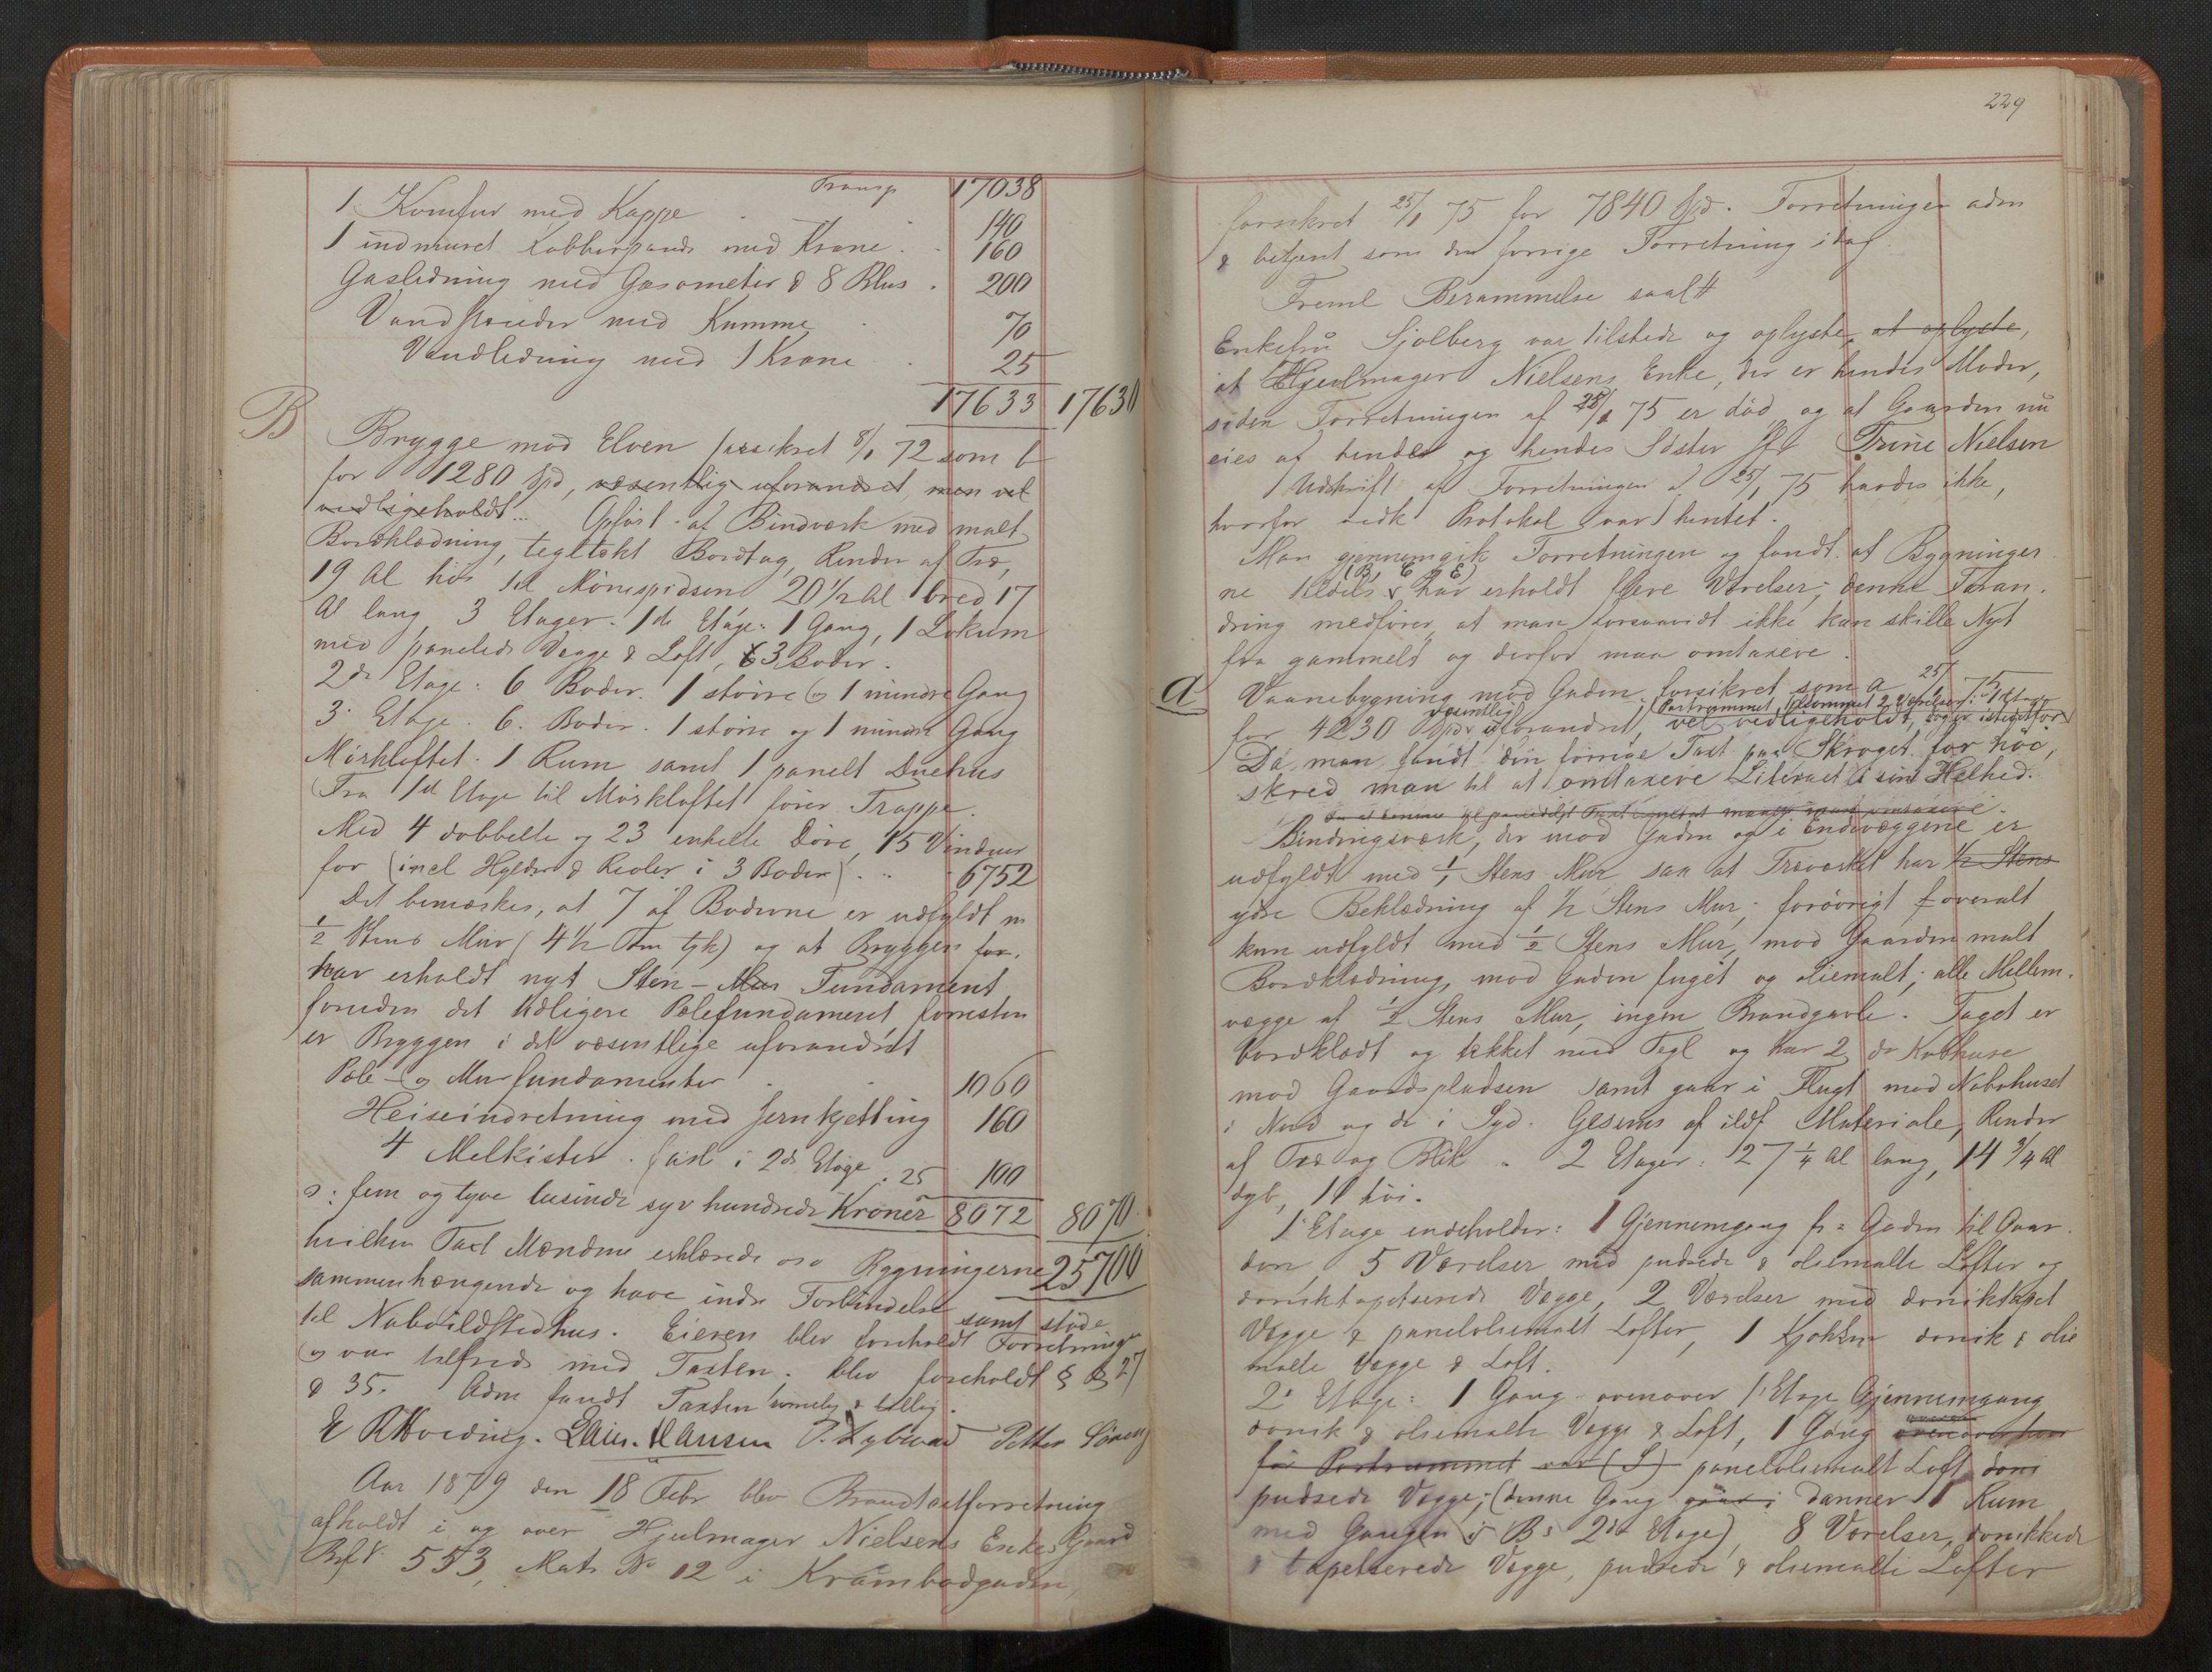 Transp 17038
1 Komfur med Kappe 140
1 indmuret Kobberpande med Krane 160
Gasledning med Gasometer & 8 Blus 200
Vandstænder med Kumme 70
Vandledning med 1 Krane 25
17633 17630
B Brygge mod Elven forsikret 8/1 72 som b
for 1280 spd, væsentlig uforandret, men vel
vedligeholdt... Opført af Bindværk med malt
Bordklædning, tegltækt Bordtag, Render af Træ,
19 Al høi til Mønespidsen 20 1/2 Al bred 17
Al lang, 3 Etager. 1ste Etage: 1 Gang, 1 Lokum
med panelede Vægge & Loft, 3 Boder.
2den Etage: 6 Boder. 1 større og 1 mindre Gang
3. Etage. 6. Boder. 1 større og 1 mindre Gang
Mørkloftet. 1 Rum samt 1 panelt Duehus
Fra 1ste Etage til Mørkloftet fører Trappe.
Med 4 dobbelte og 23 enkelte Døre, 15 Vinduer
for (incl Hylder & Reoler i 3 Boder) 6752
Det bemærkes, at 7 af Boderne er udfyldt m
1/2 Stens Mur (4 1/2 Tm tyk) og at Bryggen for.
har erholdt nyt Sten-Mur Fundament
foruden det tidligere Pælefundament forresten
er Bryggen i det væsentlige uforandret
Pæle- og Murfundamenter 1060
Heiseindretning med Jernkjetting 160
4 Melkister. fast i 2den Etage. 25 100
o: fem og tyve tusinde syv hundrede Kroner 8072 8070
hvilken Taxt Mændene erklærede osv Bygningerne 25700
sammenhængende og have indre Forbindelse samt støde
til Naboildstedhus. Eieren blev foreholdt Forretningen
og var tilfreds med Taxten. blev foreholdt § 27
& 35. Adm fandt Taxten rimelig & billig.
E R Hveding. Laur. Hansen P. Lybvad Petter Sørensen
Aar 1879 den 18 Febr blev Brandtaxtforretning
afholdt i og over Hjulmager Nielsens Enkes Gaard
Bnf N. 553, Mats No 12 i Krambodgaden,
229
forsikret 25/1 75 for 7840 spd. Forretningen adm
& betjent som den forrige Forretning idag
Freml Berammelse saal#
Enkefru Sjølberg var tilstede og oplyste, at oplyste,
at Hjulmager Nielsens Enke, der er hendes Moder,
siden Forretningen af 25/1 75 er død og at Gaarden nu
eies af hende og hendes Søster Jfr Trine Nielsen
Udskrift af Forretningen d 25/1 75 havdes ikke,
hvorfor vedk Protokol var hentet.
Man gjennemgik Forretningen og fandt at Bygninger
(B, C & E)
ne tildels har erholdt flere Værelser; denne Foran.
dring medfører, at man forsaavidt ikke kan skille Nyt
fra gammelt og derfor maa omtaxere.
A Vaanebygning mod Gaden forsikret som a 25/1 75
Portrummet, tilkommet 2 Værelser i 1 Etage
for 4230 Spdr væsentlig uforandret, vel vedligeholdt, og er istedetfor
Da man fandt den forrige Taxt paa Skroget for høi,
skred man til at omtaxere Literaet i sin Helhed.
Bindingsværk, der mod Gaden og i Endevæggene er
udfyldt med 1/1 Stens Mur saa at Træværket har 1/2 Stens
ydre Beklædning af 1/2 Stens Mur; forøvrigt f overalt
kun udfyldt med 1/2 Stens Mur, mod Gaarden malt
Bordklædning, mod Gaden fuget og oliemalt; alle Mellem.
vægge af 1/2 Stens Mur, ingen Brandgavle. Taget er
bordklædt og tækket med Tegl og har 2 dr Kobhuse
mod Gaardspladsen samt gaar i Flugt med Nabohuset
i Nord og do i Syd. Gesims af ildf Materiale, Render
af Træ og Blik. 2 Etager: 27 1/4 Al lang, 14 3/4 Al
dyb, 11 høi.
1 Etage indeholder: 1 Gjennemgang fra Gaden til Gaar.
den 5 Værelser med pudsede & oliemalte Lofter og
doniktapetserede Vægge, 2 Værelser med doniktapet
Vægge & paneloliemalt Lofter, 1 Kjøkken donik & olie
malte Vægge & Loft.
2. Etage: 1 Gang ovenover 1' Etage Gjennemgang
donik & oliemalte Vægge & Loft, 1 Gang ovenover hvor
før Portrummet var (L) paneloliemalt Loft doni
pudsede Vægge; (denne Gang gaar i danner 1 Rum
med Gangen i B's 2den Etage), 8 Værelser, donikkede
& tapetserede Vægge, pudsede & oliemalte Lofter